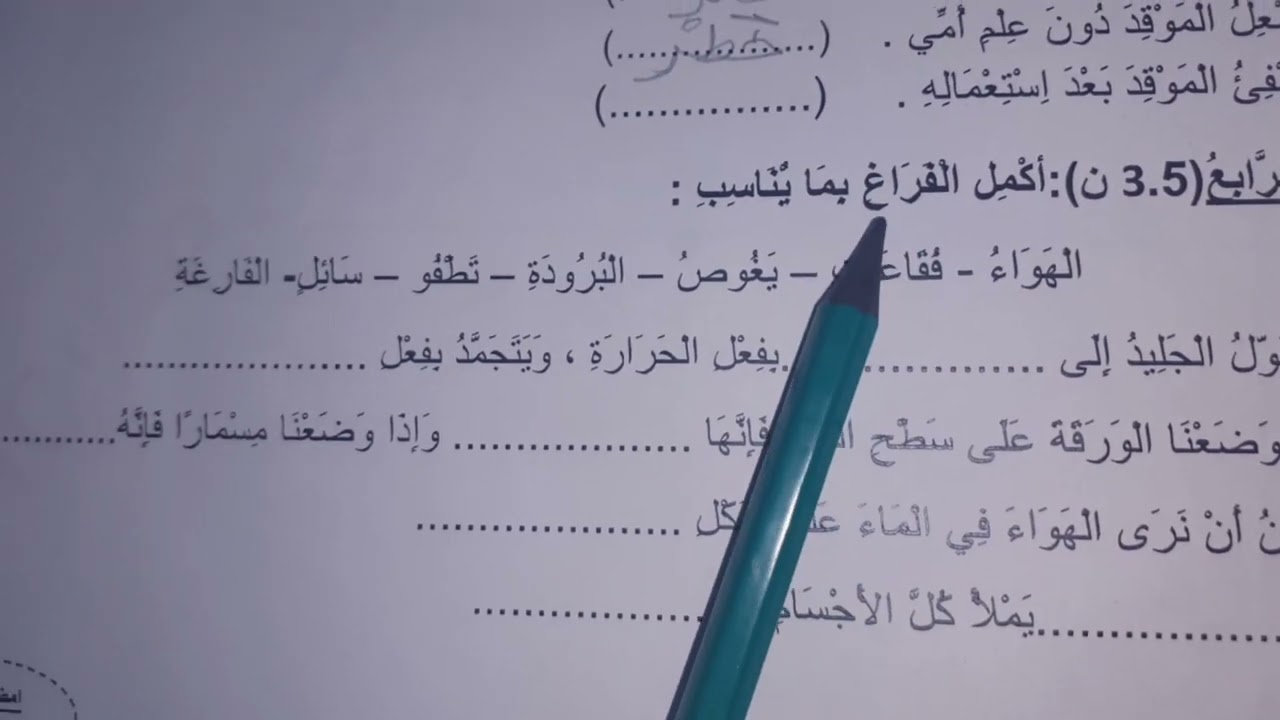 الْمَوْقِدَ دُونَ عِلْمِ أُمِّي . (..................) خطر
الْمَوْقِدَ بَعْدَ اِسْتِعْمَالِهِ . (................)
(3.5 ن):أكْمِلِ الْفَرَاغَ بِمَا يُنَاسِبِ :
الْهَوَاءُ - – يَغُوصُ – الْبُرُودَةِ – تَطْفُو – سَائِلٍ- الْفَارِغَةِ
الْجَلِيدُ إِلَى .................... بِفِعْلِ الْحَرَارَةِ ، وَيَتَجَمَّدُ بِفِعْلِ ....................
الْوَرَقَةَ عَلَى سَطْحِ فَإِنَّهَا .................... وَإِذَا وَضَعْنَا مِسْمَارًا فَإِنَّهُ...........
أَنْ نَرَى الْهَوَاءَ فِي الْمَاءَ ......................
......................يَمْلَأُ كُلَّ ......................